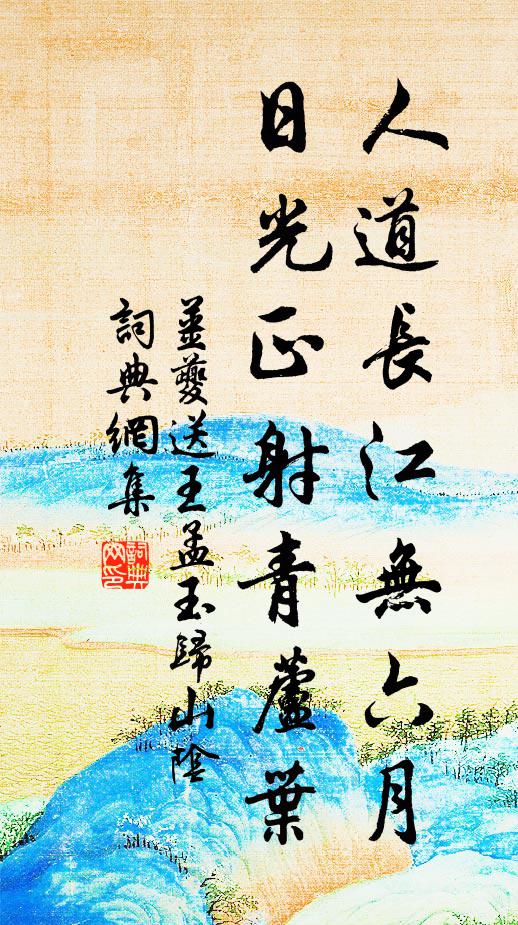 人道長江無六月
日光正射青蘆葉
姜夔送王孟玉歸山陰
詞典網集
詞典网印